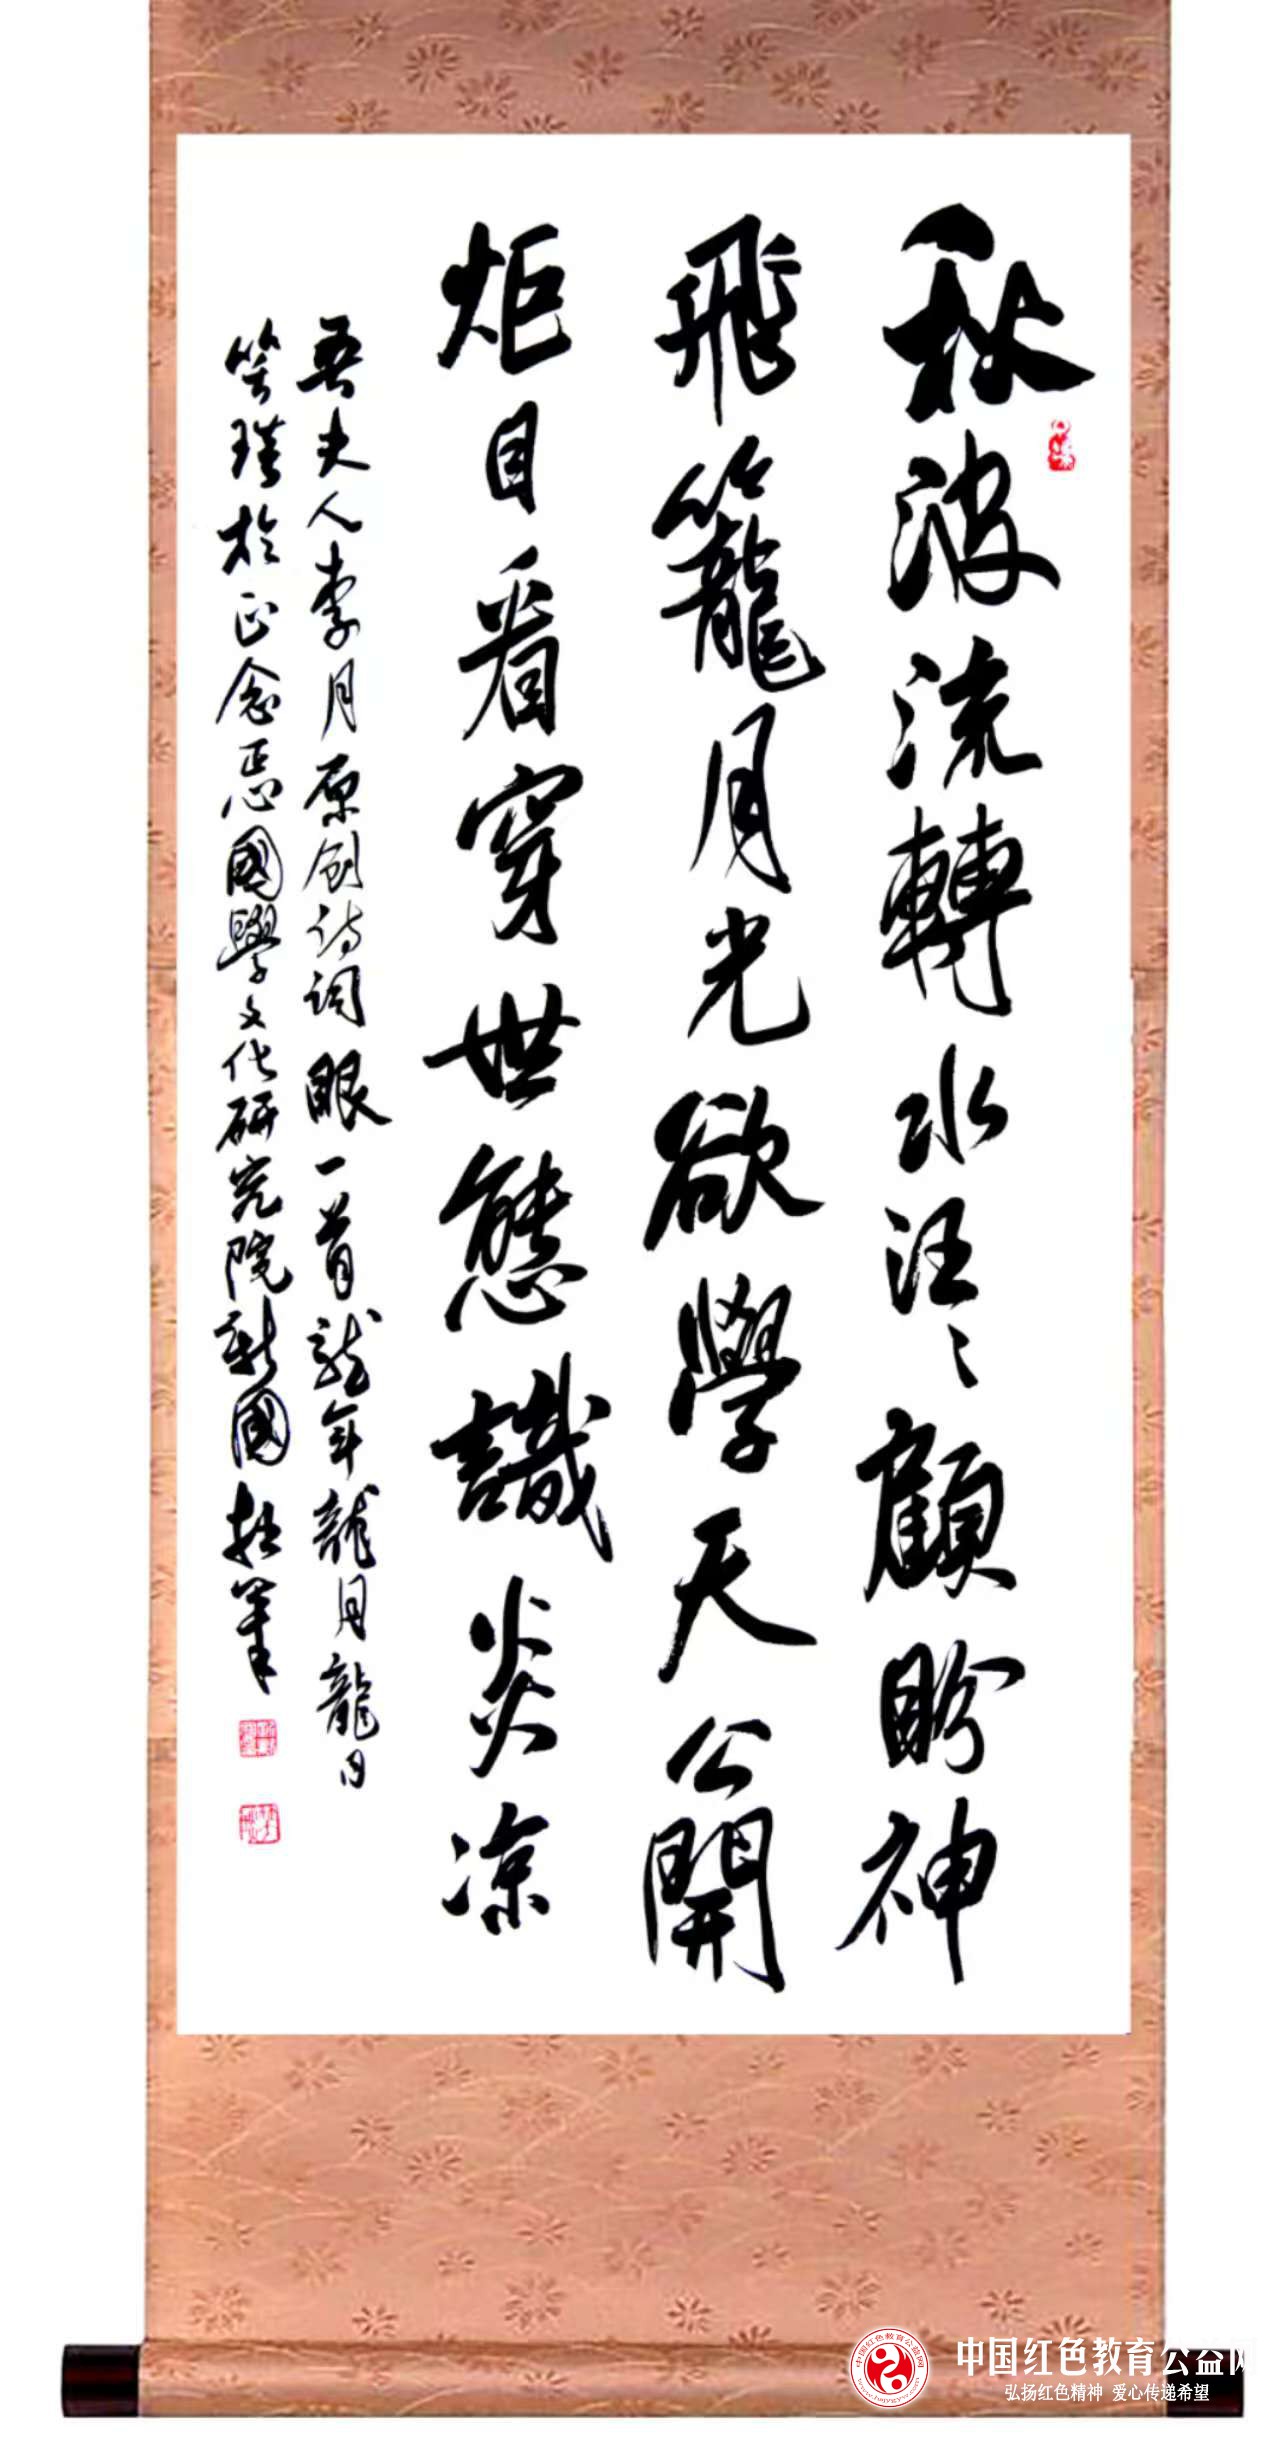 秋波流轉水汪〻顧盼神
飛籠月光欲學天公開
炬目看穿世態識炎凉
吾夫人李月原创诗词眼一首龍年龍月龍日
笑璞於正念惪國學文化研究院靳國拙筆
中国红色教育公益网
弘扬红色精神 爱心传递希望